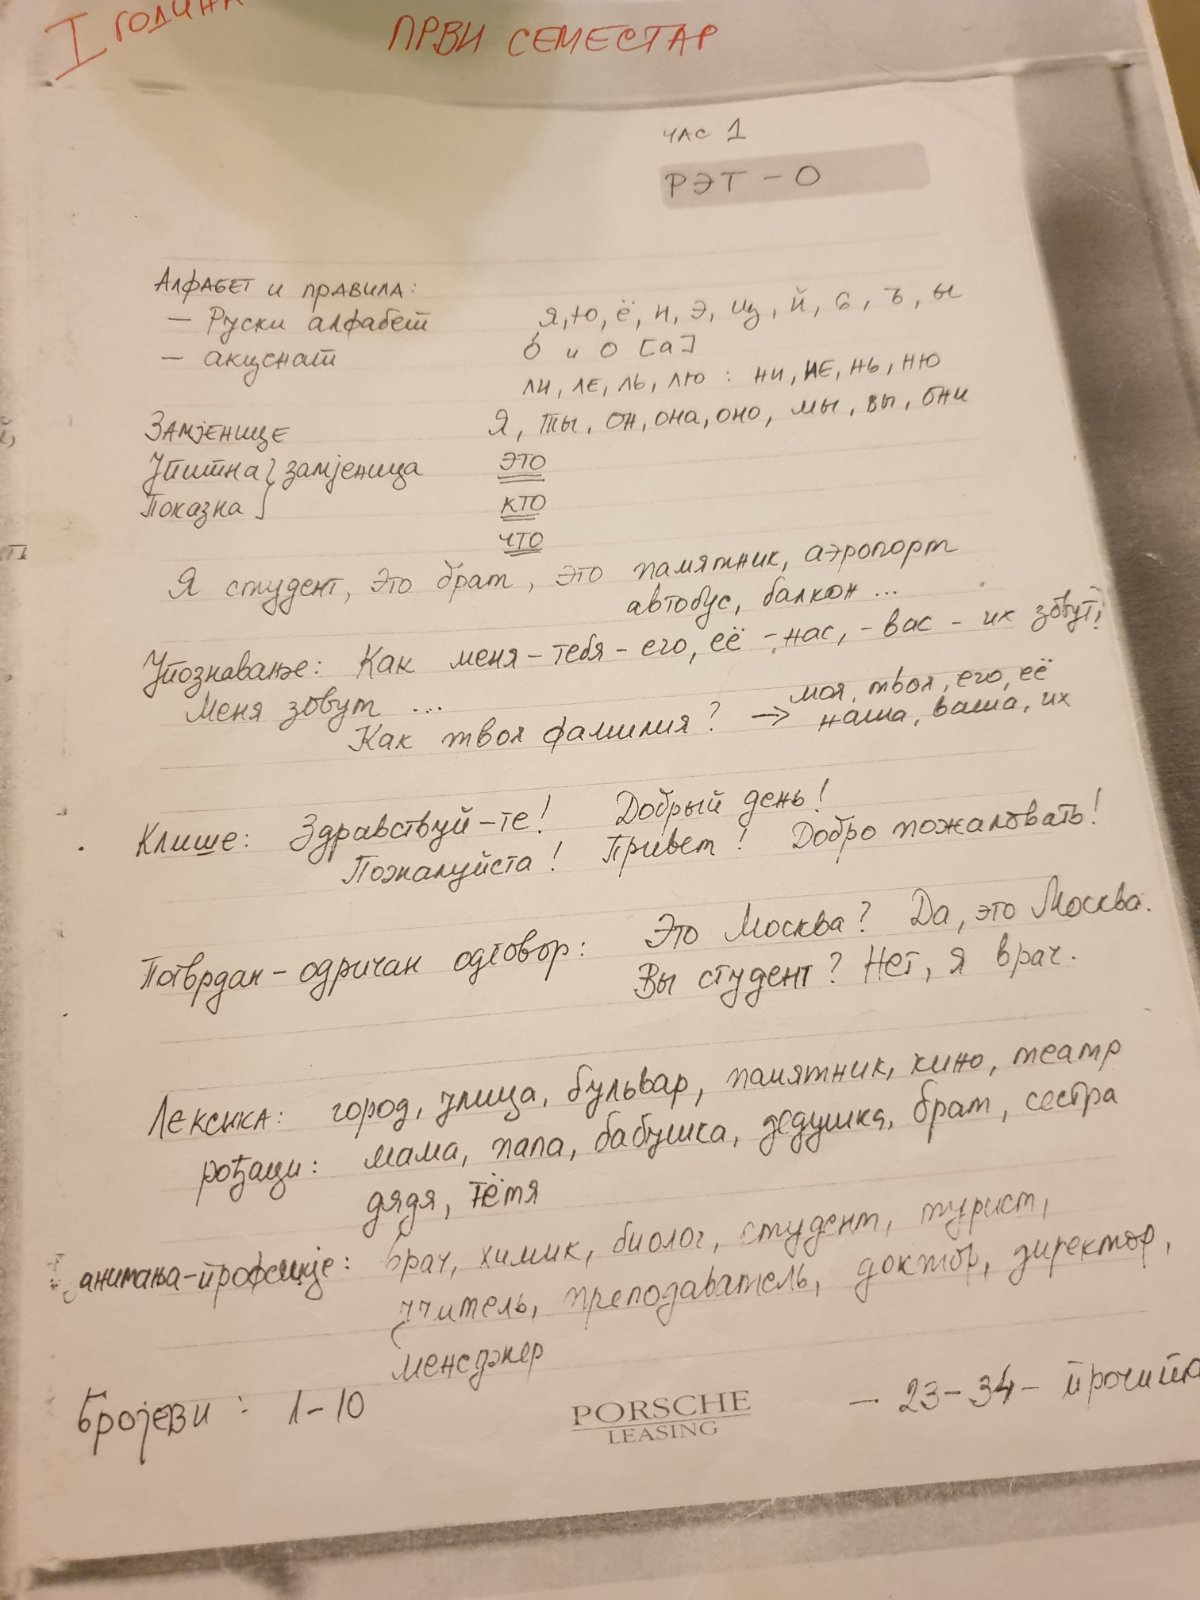 I ГОДИНА
ПРВИ СЕМЕСТАР
ЧАС 1
РЭТ - О
АЛФАБЕТ И ПРАВИЛА:
- Руски алфабет Я, Ю, ё, и, э, щ, й, ь, ъ, ы
- акценат ó и О [а]
ли, ле, ль, лю : ни, не, нь, ню
ЗАМЈЕНИЦЕ Я, ты, он, она, оно, мы, вы, они
Упитна } замјеница ЭТО
Показна КТО
ЧТО
Я студент, это брат, это памятник, аэропорт
автобус, балкон ...
Упознавање: Как меня - тебя - его, её - нас, - вас - их зовут?
Меня зовут ...
Как твоя фамилия? → моя, твоя, его, её
наша, ваша, их
Клише: Здравствуй-те! Добрый день!
Пожалуйста! Привет! Добро пожаловать!
Потврдан - одричан одговор: Это Москва? Да, это Москва.
Вы студент? Нет, я врач.
Лексика: город, улица, бульвар, памятник, кино, театр
рођаци: мама, папа, бабушка, дедушка, брат, сестра
дядя, тётя
занимања - професије: врач, химик, биолог, студент, турист,
учитель, преподаватель, доктор, директор,
менеджер
Бројеви: 1-10 - 23-34-
PORSCHE
LEASING